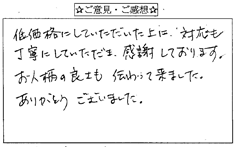 ☆ご意見・ご感想☆
低価格にしていただいた上に、対応も
丁寧にしていただき、感謝しております。
お人柄の良さも伝わって来ました。
ありがとうございました。